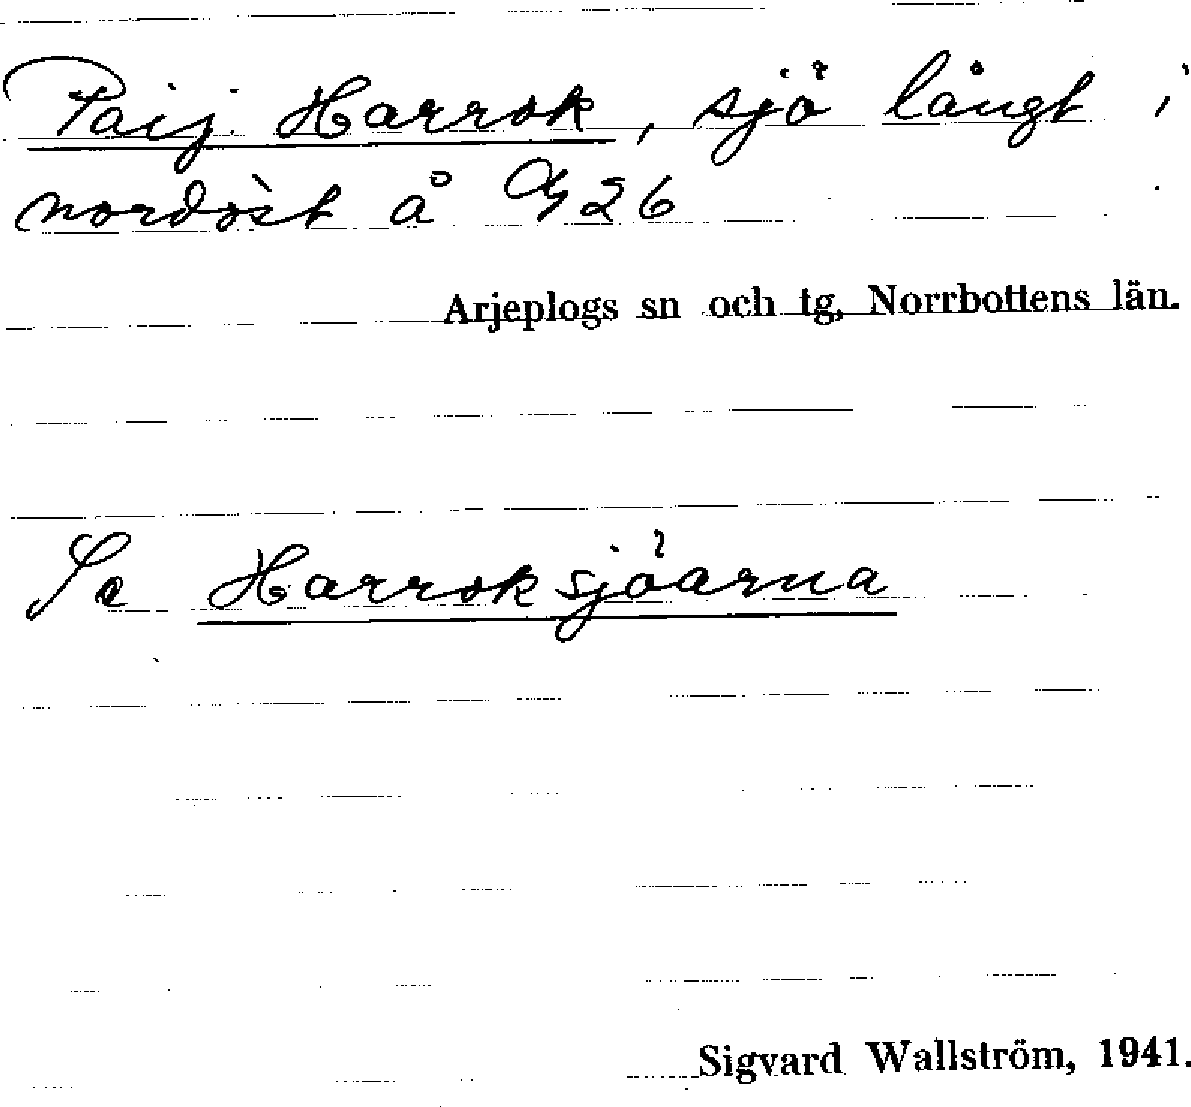 Paij Harrok, sjö långt i
nordöst å G 26
Arjeplogs sn och tg, Norrbottens län.
Se Harroksjöarna
Sigvard Wallström, 1941.